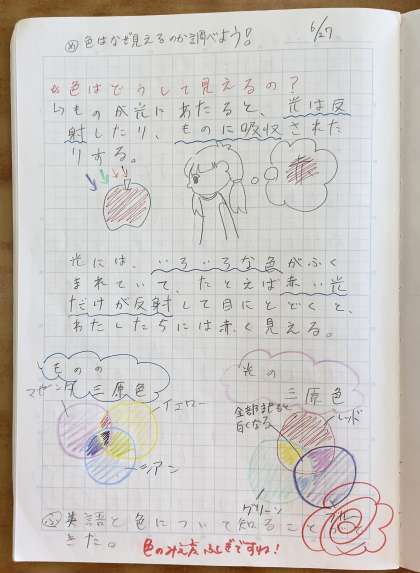 め 色はなぜ見えるのか調べよう! 6/27
色はどうして見えるの?
↳ものが光にあたると、光は反
射したり、ものに吸収された
りする。
光には、いろいろな色がふく
まれていて、たとえば赤い光
だけが反射して目にとどくと、
わたしたちには赤く見える。
ものの
三原色
マゼンタ
イエロー
シアン
光の
三原色
全部まざると
白くなる
レッド
グリーン
ブルー
ふ 英語と色について知ることができ
きた。
色のみえ方、ふしぎですね!